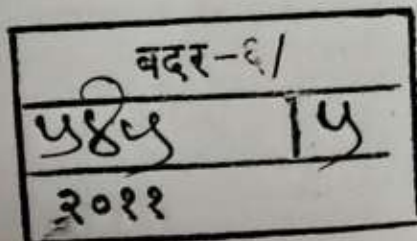 बदर-६/
५४५ |५
२०११